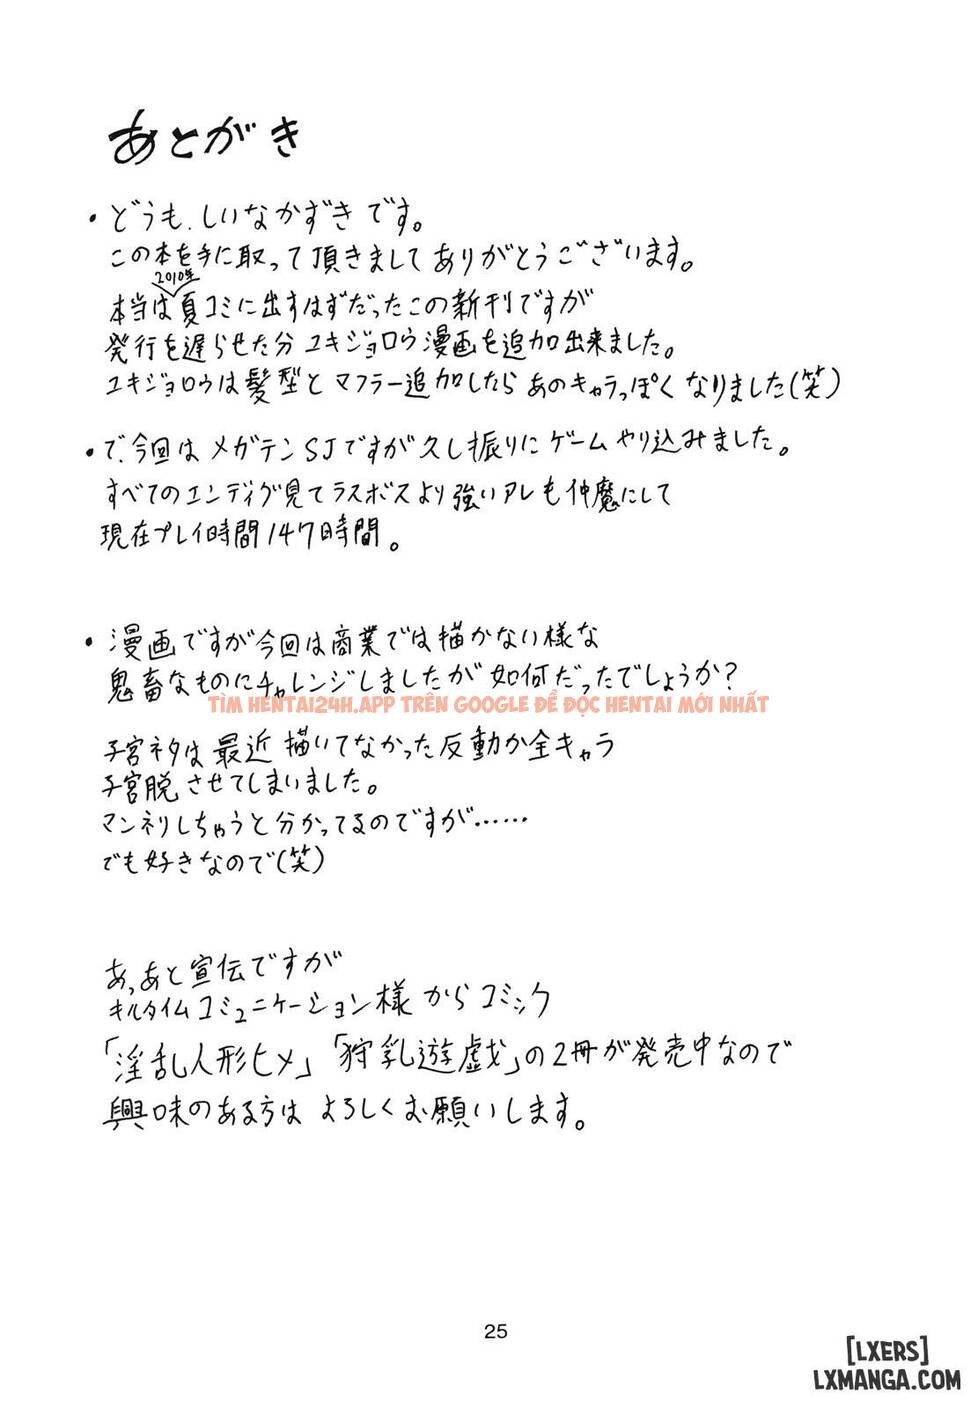 あとがき
・どうも、しいなかずきです。
この本を手に取って頂きましてありがとうございます。
2010年
本当は夏コミに出すはずだったこの新刊ですが
発行を遅らせた分ユキジョロウ漫画を追加出来ました。
ユキジョロウは髪型とマフラー追加したらあのキャラっぽくなりました(笑)
・で、今回はメガテンSJですが久し振りにゲームやり込みました。
すべてのエンディグ見てラスボスより強いアレも仲魔にして
現在プレイ時間147時間。
・漫画ですが今回は商業では描かない様な
鬼畜なものにチャレンジしましたが如何だったでしょうか?
TÌM HENTAI24H.APP TRÊN GOOGLE ĐỂ ĐỌC HENTAI MỚI NHẤT
子宮ネタは最近描いてなかった反動か全キャラ
子宮脱させてしまいました。
マンネリしちゃうと分かってるのですが……
でも好きなので(笑)
あ、あと宣伝ですが
キルタイムコミュニケーション様からコミック
「淫乱人形ヒメ」「狩乳遊戯」の2冊が発売中なので
興味のある方はよろしくお願いします。
25
[LXERS]
LXMANGA.COM